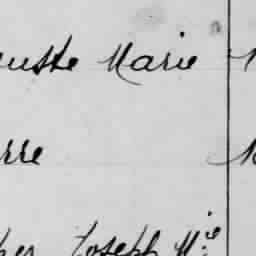 uste Marie
rre
her Joseph Mie